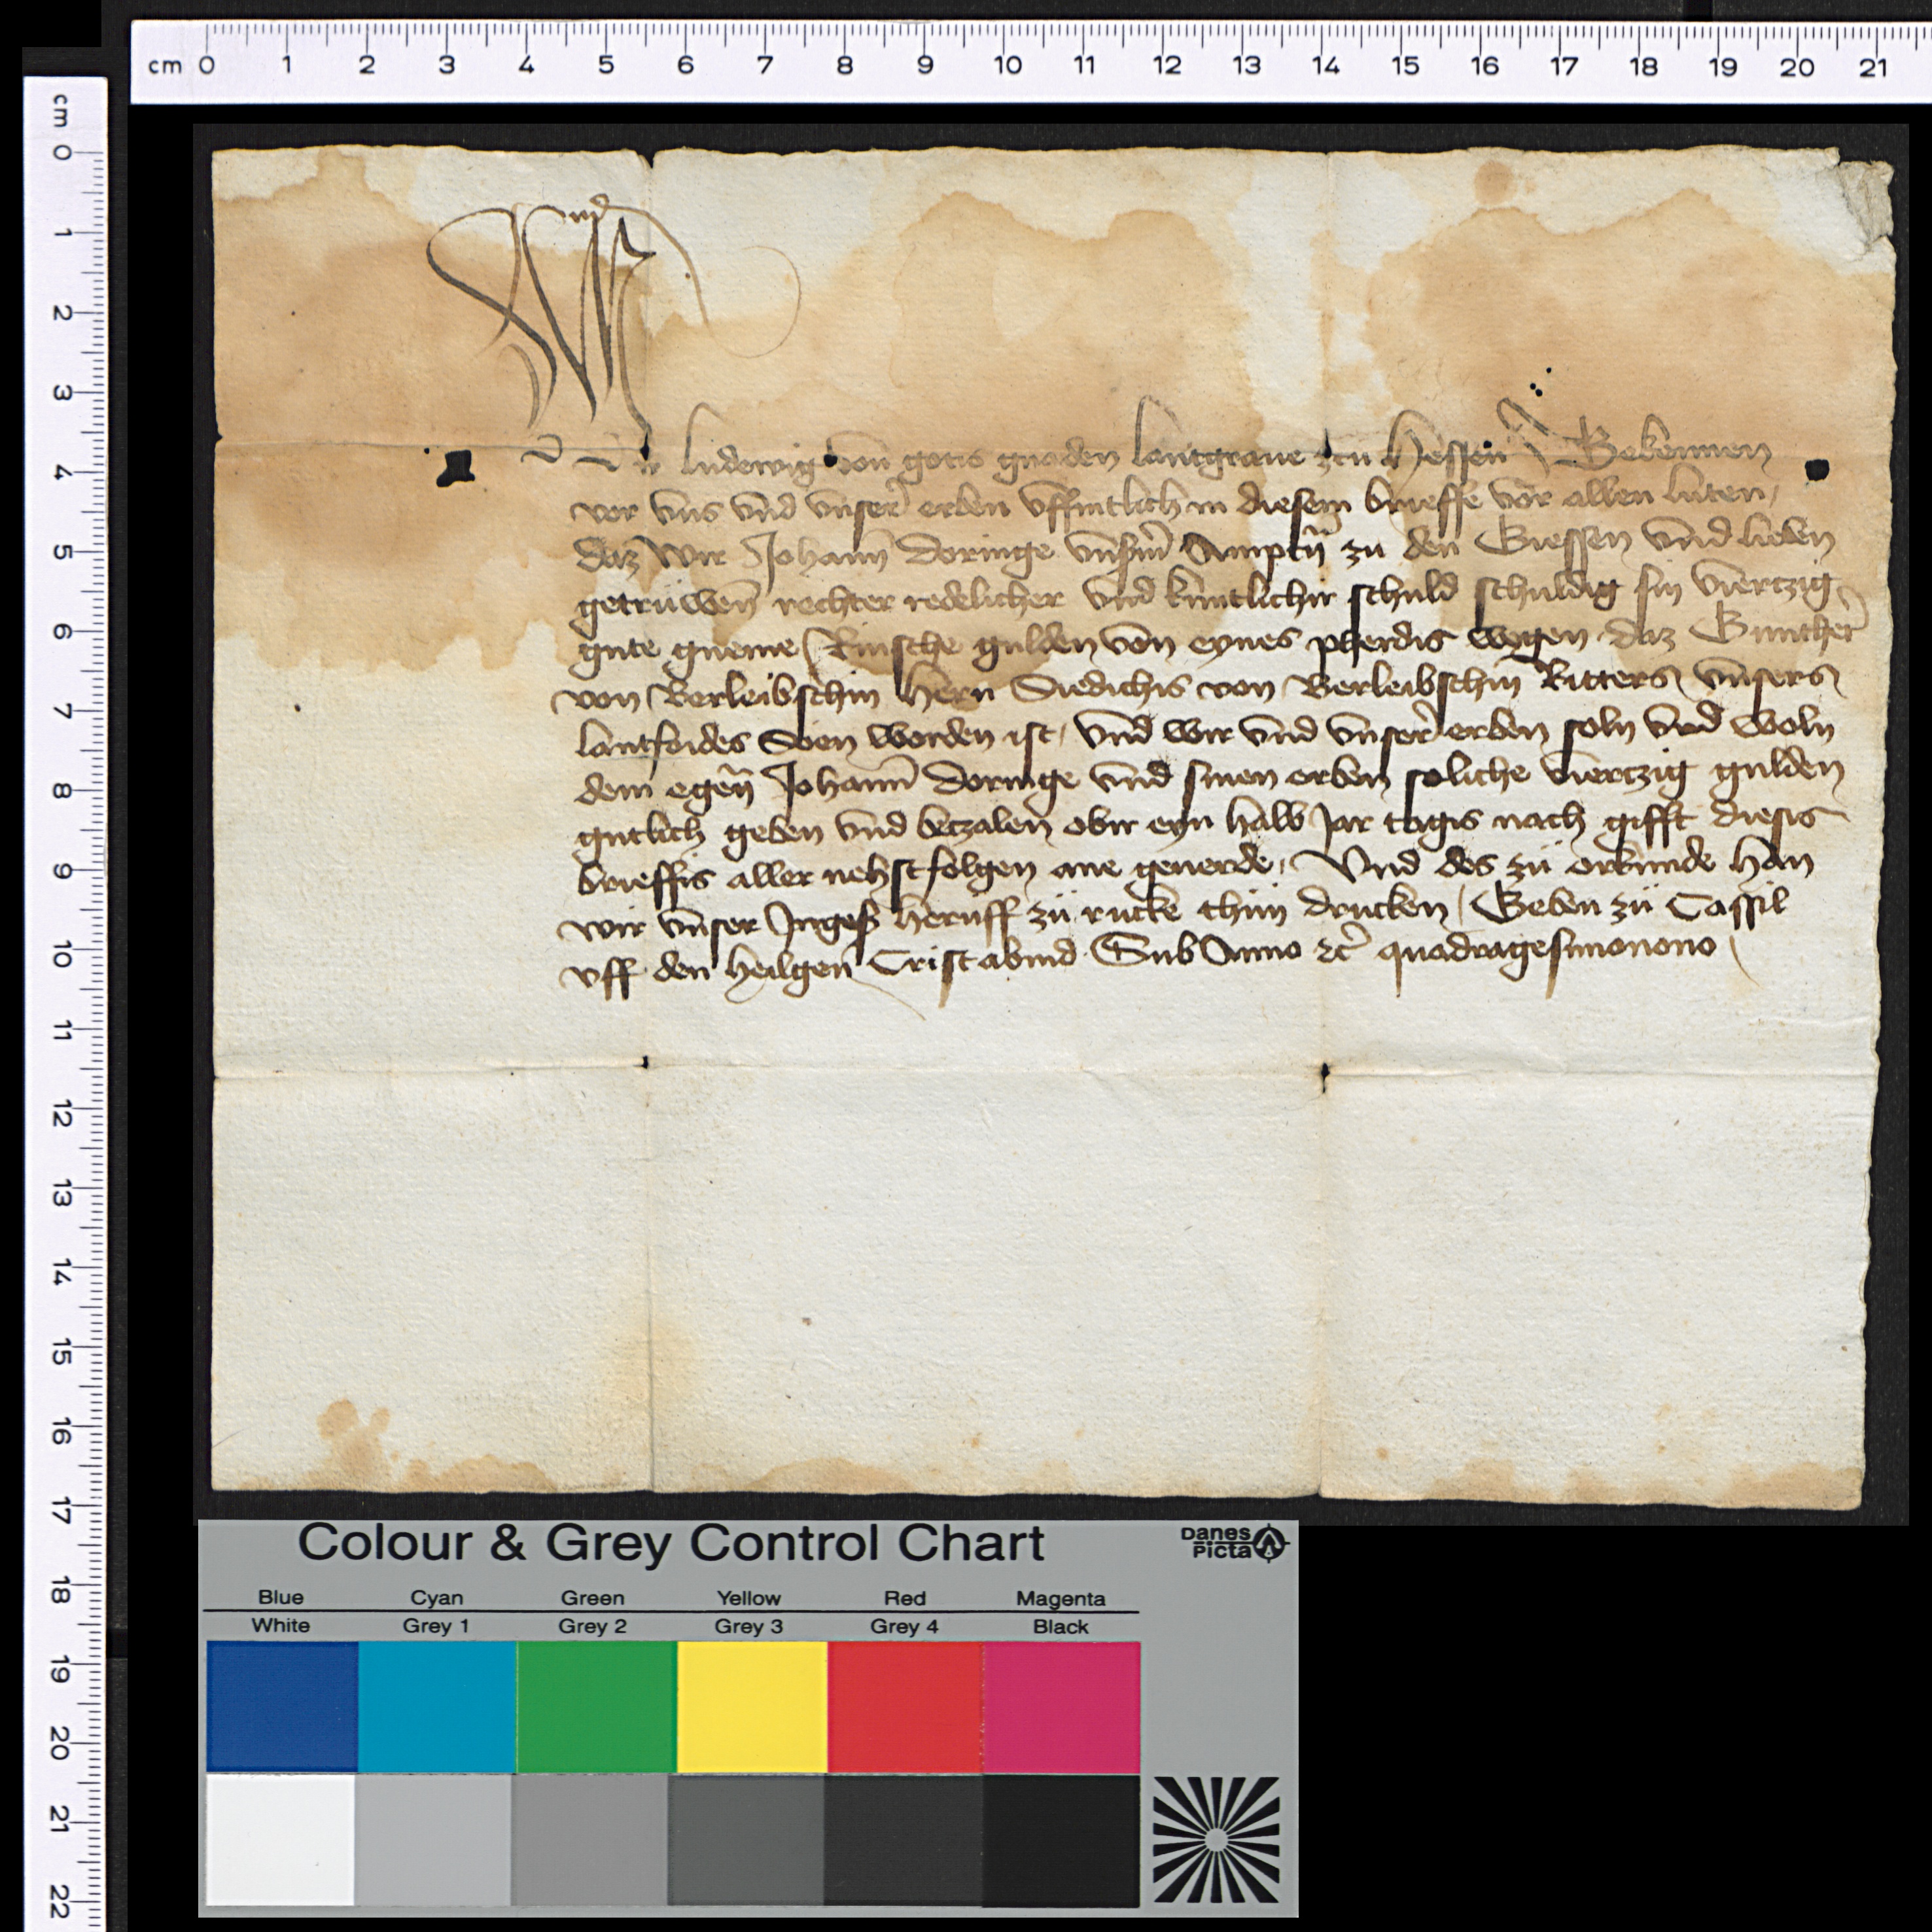 cm 0 1 2 3 4 5 6 7 8 9 10 11 12 13 14 15 16 17 18 19 20 21
cm 0 1 2 3 4 5 6 7 8 9 10 11 12 13 14 15 16 17 18 19 20 21 22
Wir Ludewig von gots gnaden lantgraue zcu Hessen Bekennen
vor vns vnd vnser erben vffintlich in diesem brieffe vor allen luten,
daz wir Johann Doringe vnserm Amptm̃ zu den Giessen vnd lieben
getruwen rechter redelicher vnd kuntlichir schuld schuldig sin viertzig
gute gneme Rinsche gulden von eynes pherdis wegen daz Gunther
von Berleibschin hern Siedichis von Berleibschin Ritters vnsers
lantfoides Soen worden ist, vnd wir vnd vnser erben soln vnd woln
dem egeñ Johann Doringe vnd sinen erben soliche viertzig gulden
gutlich geben vnd beczalen obir eyn halb Jar tagis nach gifft diesis
brieffis aller nehstfolgen ane geuerde, Vnd des zü orkunde han
wir vnser Ingeß heruff zü rucke thün drucken, Geben zü Cassil
vff den heilgen Cristabind Sub Anno ꝛc̃ quadragesimonono
Colour & Grey Control Chart
Danes
Picta
Blue Cyan Green Yellow Red Magenta
White Grey 1 Grey 2 Grey 3 Grey 4 Black